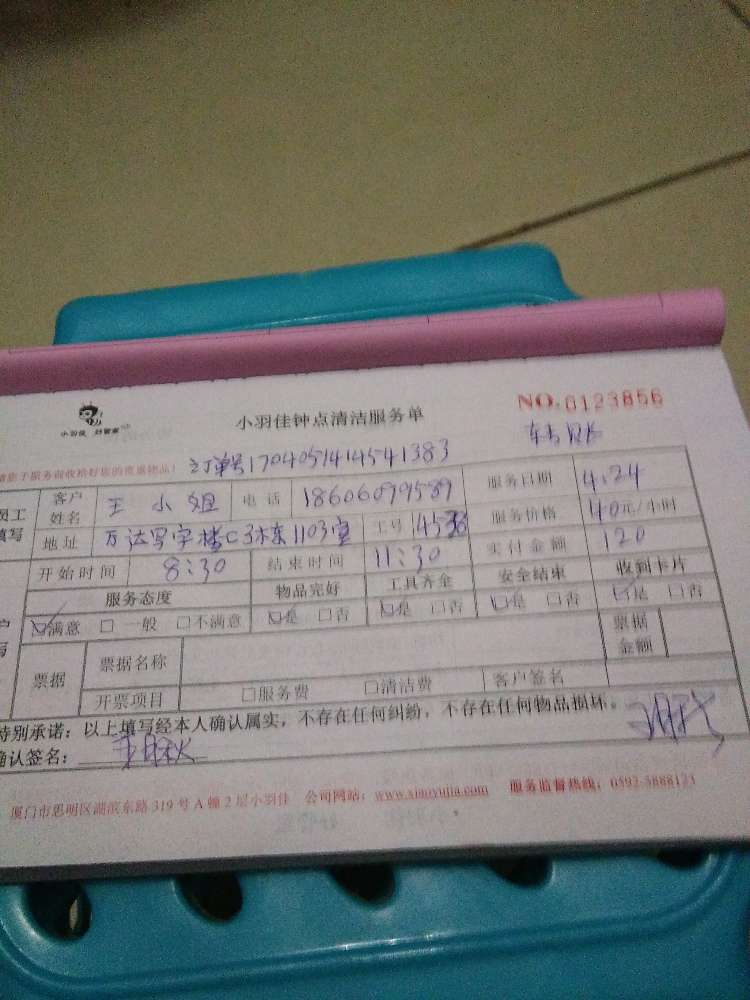 小羽佳 好管家
小羽佳钟点清洁服务单
NO.0123856
订单号17040571414541383
员工填写 客户姓名 王小姐 电话 18606099589 服务日期 4.24
地址 万达写字楼C3栋1103室 工号 服务价格 40元/小时
开始时间 8:30 结束时间 11:30 实付金额 120
服务态度 物品完好 工具齐全 安全结束 收到卡片
☑满意 □一般 □不满意 ☑是 □否 ☑是 □否 ☑是 □否 ☑是 □否
票据 票据名称 票据金额
开票项目 □服务费 □清洁费 客户签名
特别承诺：以上填写经本人确认属实，不存在任何纠纷，不存在任何物品损坏。
确认签名：
厦门市思明区湖滨东路319号A幢2层小羽佳 公司网站：www.xiaoyujia.com 服务监督热线：0592-5888123